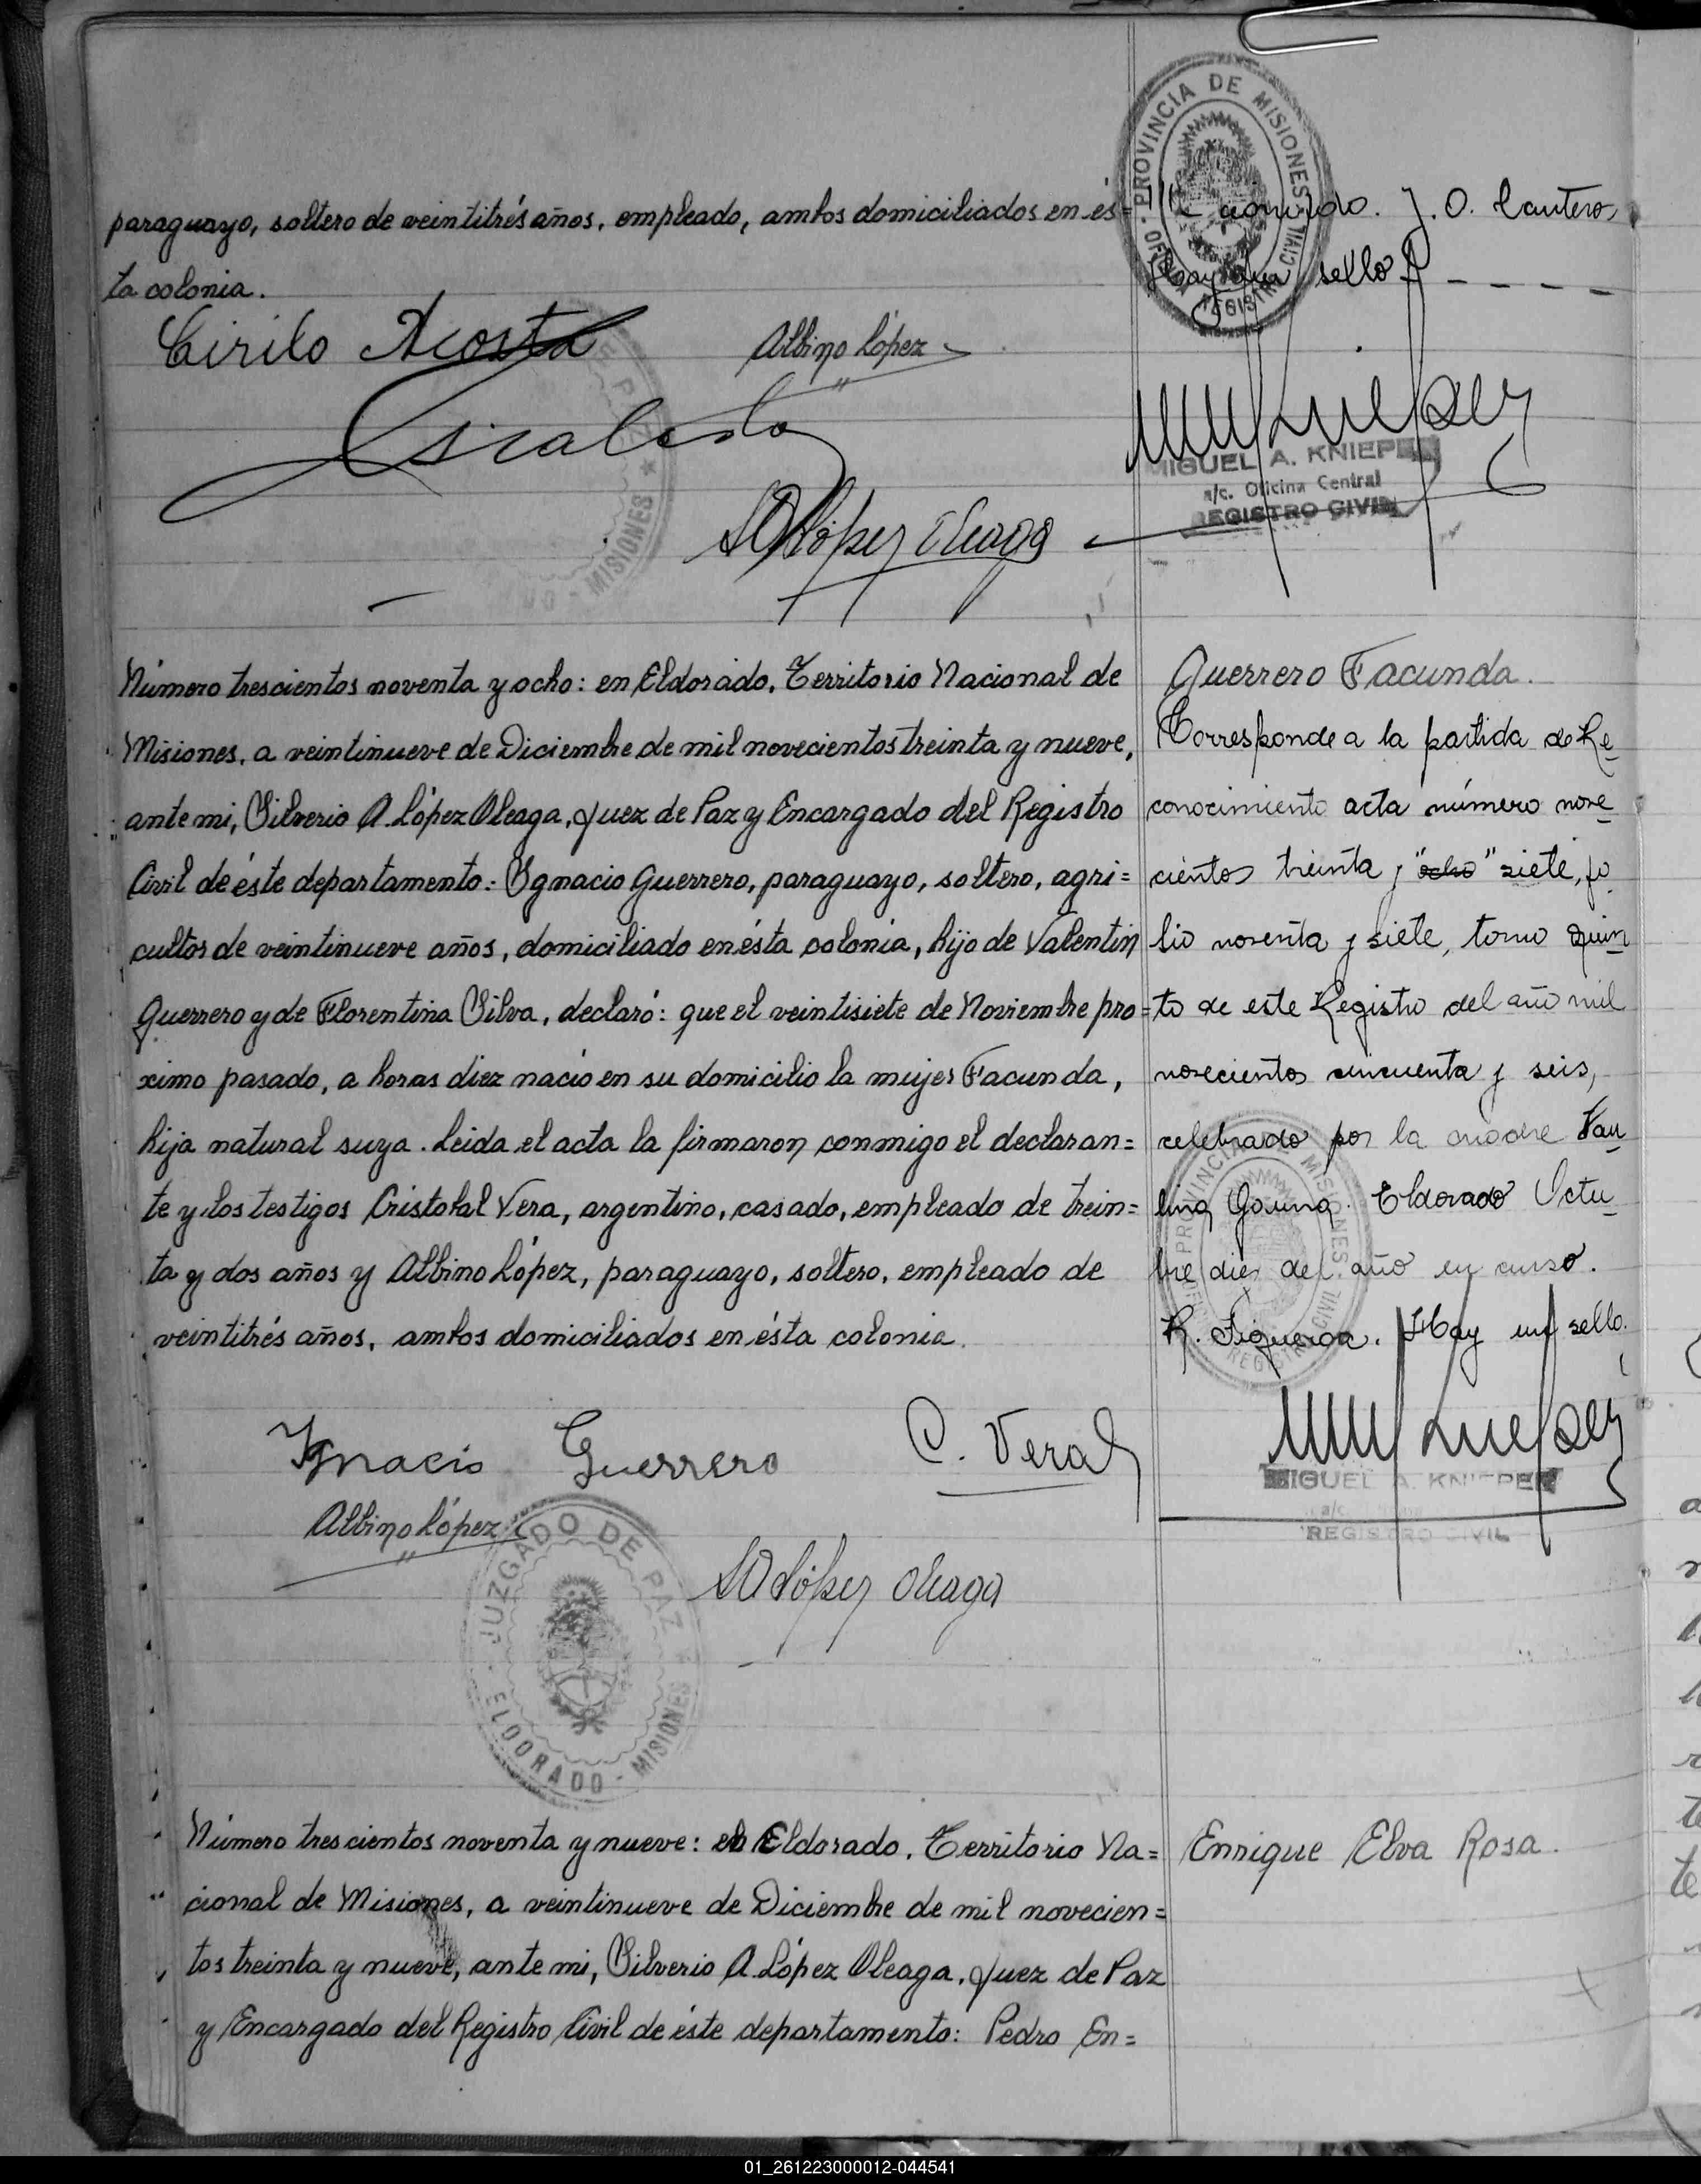 paraguayo, soltero de veintitrés años, empleado, ambos domiciliados en és=
ta colonia.
Cirilo Acosta
Albino López
SA López Oleaga
J. O. Cantero,
Hay un sello
PROVINCIA DE MISIONES
REGISTRO CIVIL
MIGUEL A. KNIEPER
a/c. Oficina Central
REGISTRO CIVIL
MISIONES
Número trescientos noventa y ocho: en Eldorado, Territorio Nacional de
Misiones, a veintinueve de Diciembre de mil novecientos treinta y nueve,
ante mi, Silverio A. López Oleaga, Juez de Paz y Encargado del Registro
Civil de éste departamento: Ygnacio Guerrero, paraguayo, soltero, agri=
cultor de veintinueve años, domiciliado en ésta colonia, hijo de Valentin
Guerrero y de Florentina Silva, declaró: que el veintisiete de Noviembre pro=
ximo pasado, a horas diez nacio en su domicilio la mujer Facunda,
hija natural suya. Leida el acta la firmaron conmigo el declaran=
te y los testigos Cristobal Vera, argentino, casado, empleado de trein=
ta y dos años y Albino López, paraguayo, soltero, empleado de
veintitrés años, ambos domiciliados en ésta colonia.
Guerrero Facunda.
Corresponde a la partida de Re
conocimiento acta número nove
cientos treinta y "ocho" siete, fo
lio noventa y siete, tomo quin
to de este Registro del año mil
novecientos cincuenta y seis,
celebrado por la madre Pau
lina Gauna. Eldorado Octu
bre diez del año en curso.
R. Figueroa. Hay un sello.
PROVINCIA DE MISIONES
REGISTRO CIVIL
MIGUEL A. KNIEPER
REGISTRO CIVIL
Ygnacio Guerrero
C. Vera
Albino López
SA López Oleaga
JUZGADO DE PAZ
ELDORADO - MISIONES
Número trescientos noventa y nueve: en Eldorado, Territorio Na=
cional de Misiones, a veintinueve de Diciembre de mil novecien=
tos treinta y nueve, ante mi, Silverio A. López Oleaga, Juez de Paz
y Encargado del Registro Civil de éste departamento: Pedro En=
Enrique Elva Rosa.
01_261223000012-044541